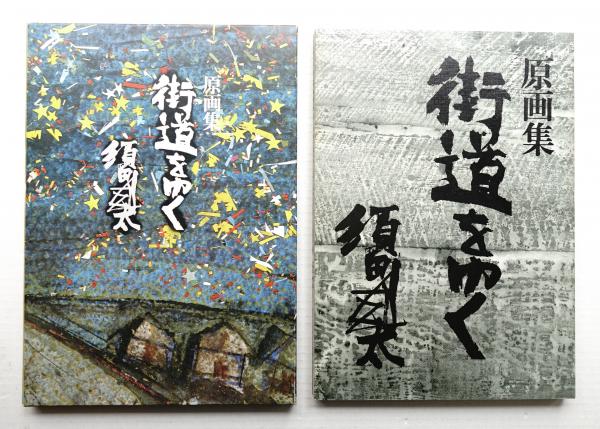 原画集
街道をゆく
須田剋太
原画集
街道をゆく
須田剋太